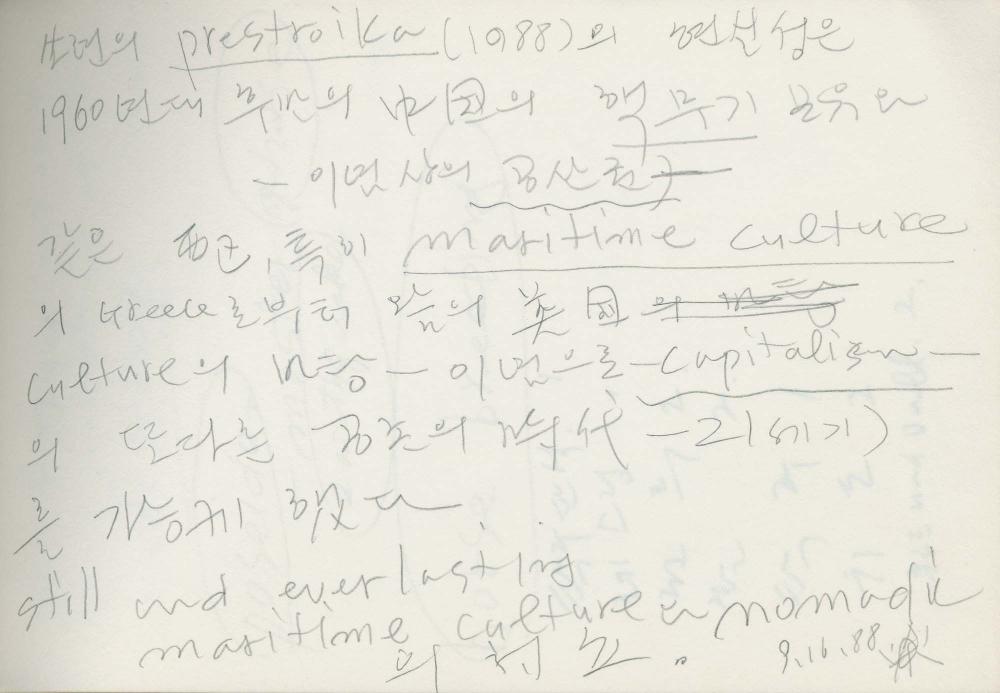 소련의 prestroika (1988)의 현실성은
1960년대 후반의 中国의 핵무기 보유와
- 이념상의 공산권
같은 西区, 특히 maritime culture
의 Greece로부터 의 英国의
culture의 - 이념으로 - capitalism -
의 또다른 공존의 時代 - 21세기)
를 가능케 했다.
still and everlasting
maritime culture와 nomadic
의 . 9.16.88.